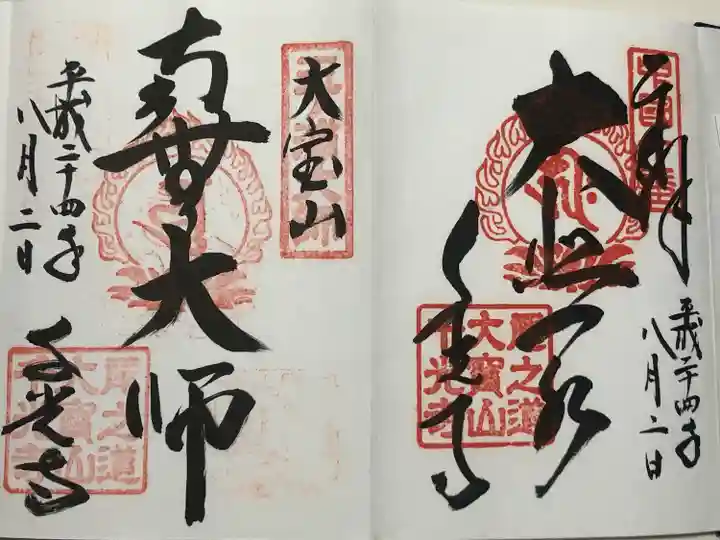 奉拝
大悲殿
千光寺
平成二十四年
八月二日
尾之道
大寳山
千光寺
大宝山
大師
千光寺
平成二十四年
八月二日
尾之道
大寳山
千光寺